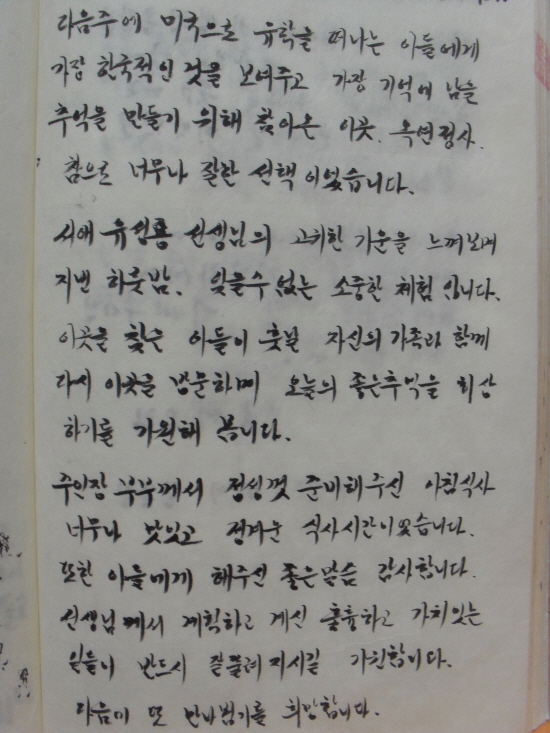 다음주에 미국으로 유학을 떠나는 아들에게
가장 한국적인 것을 보여주고 가장 기억에 남을
추억을 만들기 위해 찾아온 이곳. 옥연정사.
참으로 너무나 잘한 선택이었습니다.
서애 유성룡 선생님의 고귀한 기운을 느껴보며
지낸 하룻밤. 잊을수 없는 소중한 체험입니다.
이곳을 찾은 아들이 훗날 자신의 가족과 함께
다시 이곳을 방문하며 오늘의 좋은추억을 회상
하기를 기원해 봅니다.
주인장 부부께서 정성껏 준비해주신 아침식사
너무나 맛있고 정겨운 식사시간이었습니다.
또한 아들에게 해주신 좋은말씀 감사합니다.
선생님께서 계획하고 계신 훌륭하고 가치있는
일들이 반드시 잘풀려지시길 기원합니다.
다음에 또 만나뵙기를 희망합니다.